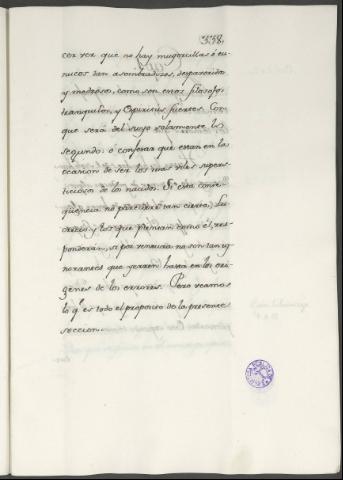 338.
cer ver que no hay mugercillas ó eu-
nucos tan asombradizos, despavoridos
y medrosos, como son estos filosofos
tranquilos, y Espiritus fuertes. Con
que será del suyo solamente lo
segundo: ó confesar que estan en la
ocasion de ser los mas viles supers-
ticiosos de los nacidos. Si esta conse-
qüencia no pareciere tan cierta, Lu-
crecio y los que piensan como el, res-
ponderán, si por ventura no son tan yg-
norantes que yerren hasta en los ori-
genes de los errores. Pero veamos
lo q.e es todo el proposito de la presente
seccion.